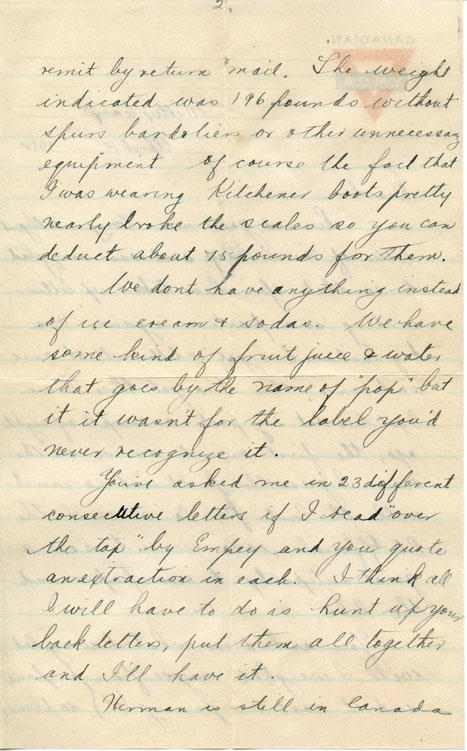 2.
CANADIAN
remit by return mail. The weight
indicated was 196 pounds without
spurs bandoliers or other unnecessary
equipment of course the fact that
I was wearing Kitchener boots pretty
nearly broke the scales so you can
deduct about 75 pounds for them.
We dont have anything instead
of ice cream & sodas. We have
some kind of fruit juice & water
that goes by the name of "pop" but
it it wasn't for the label you'd
never recognize it.
You've asked me in 23 different
consecutive letters if I read "over
the top" by Empey and you quote
an extraction in each. I think all
I will have to do is hunt up your
back letters, put them all together
and I'll have it.
Herman is still in Canada